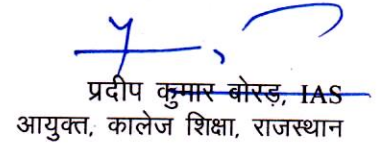 प्रदीप कुमार बोरड़, IAS
आयुक्त, कालेज शिक्षा, राजस्थान